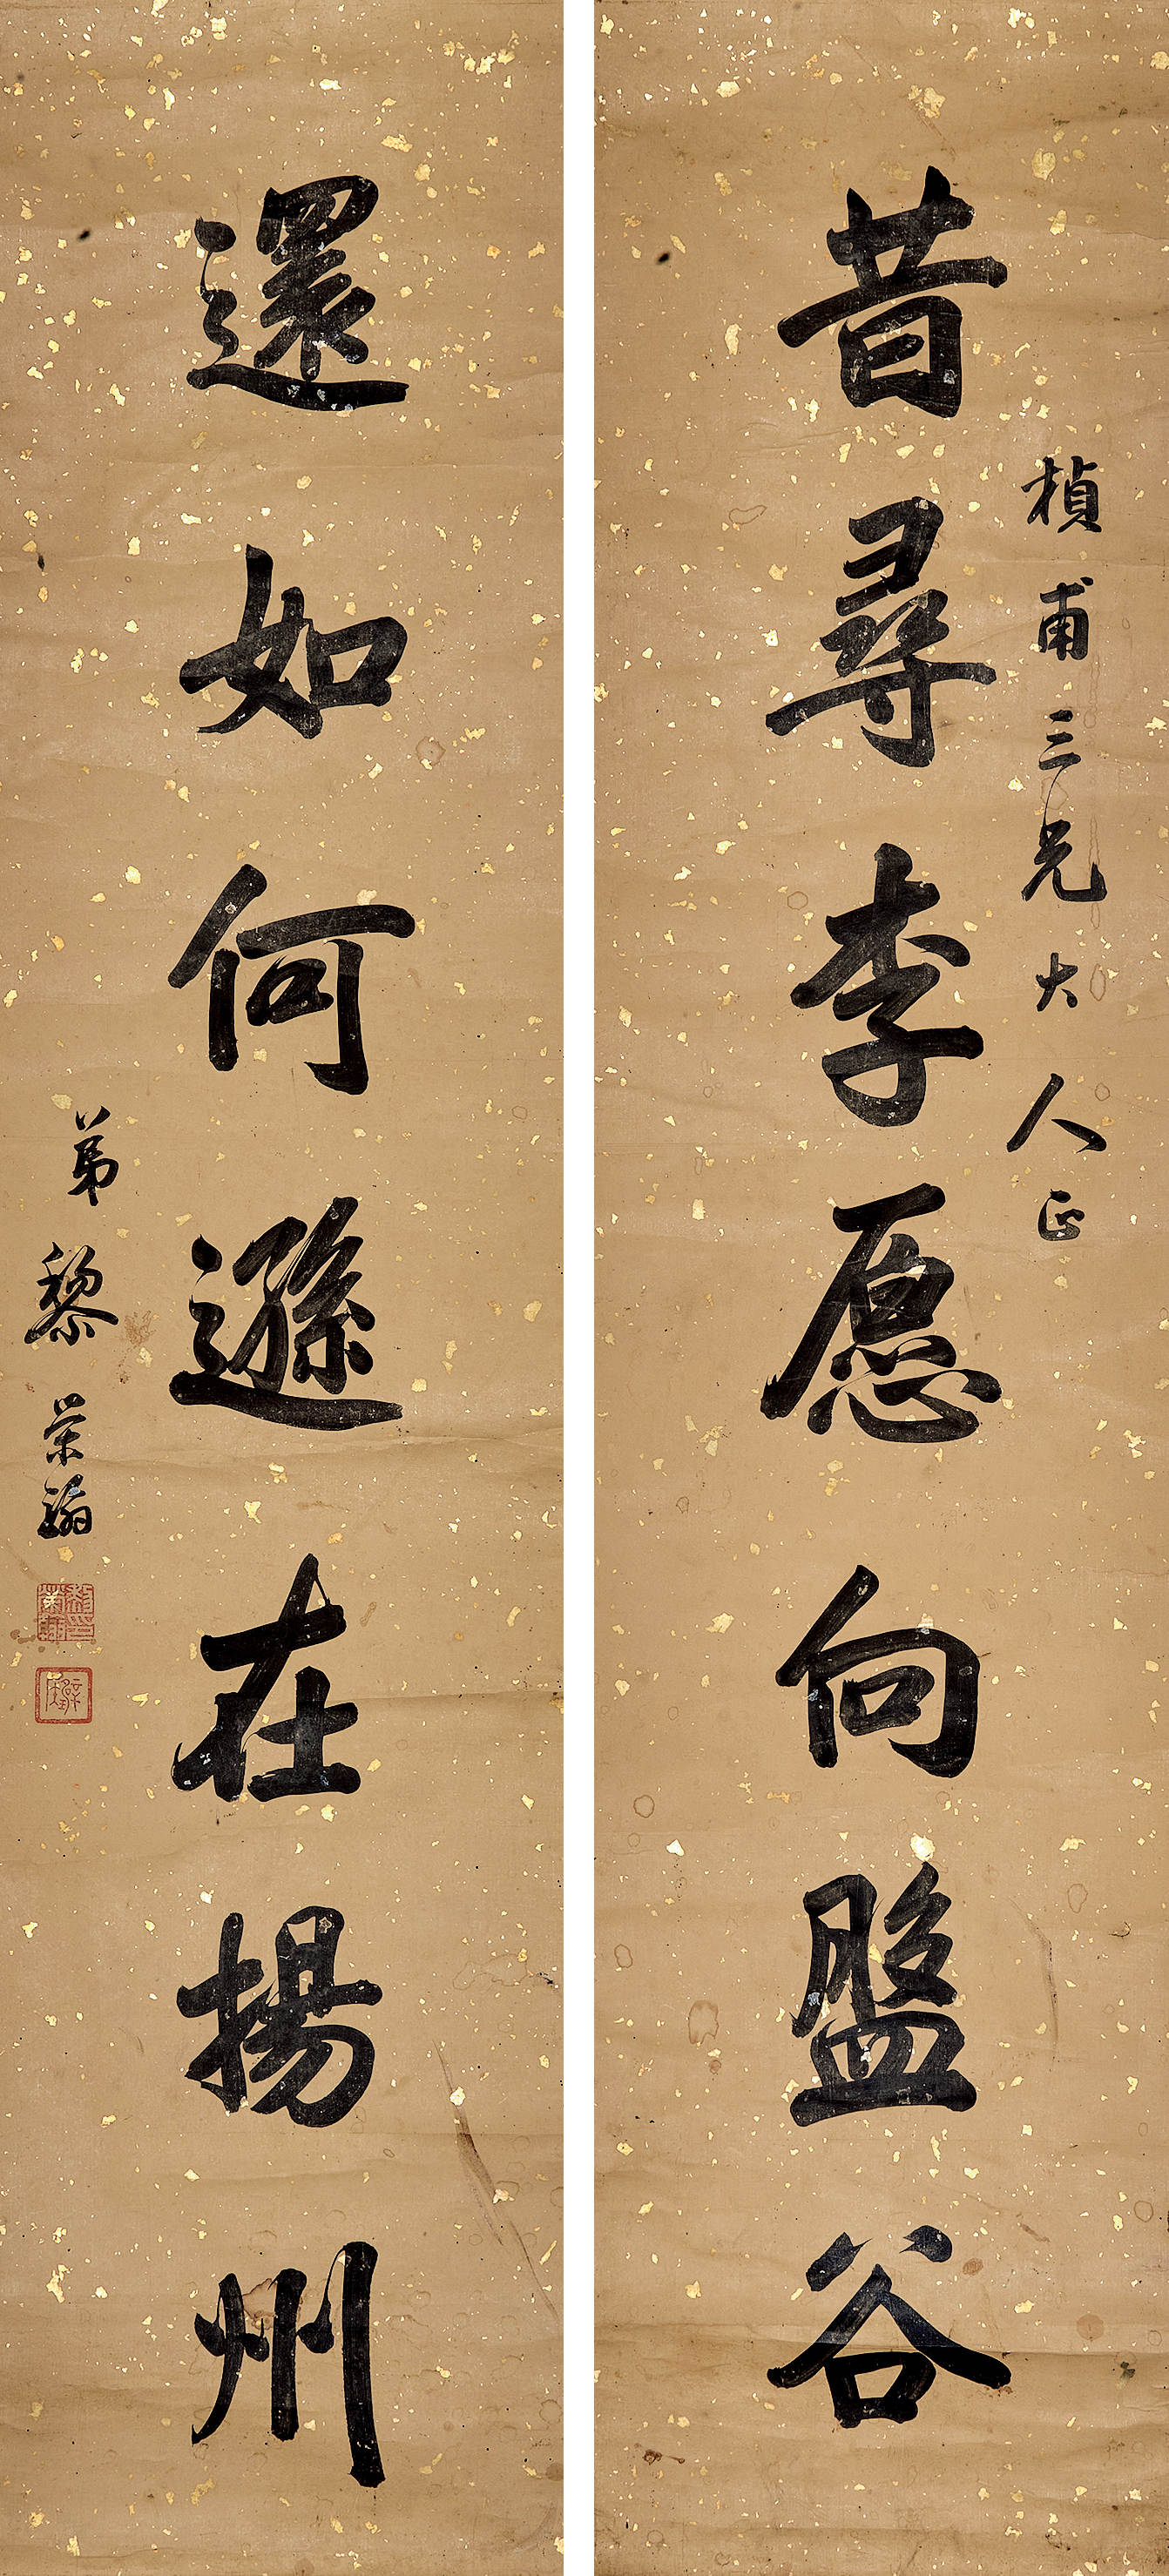 昔尋李愿向盤谷
楨甫三兄大人正
還如何遜在揚州
弟黎榮翰